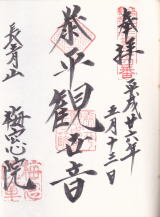 奉拝
平成廿六年
五月十三日
泰平観世音
長青山
梅窓院